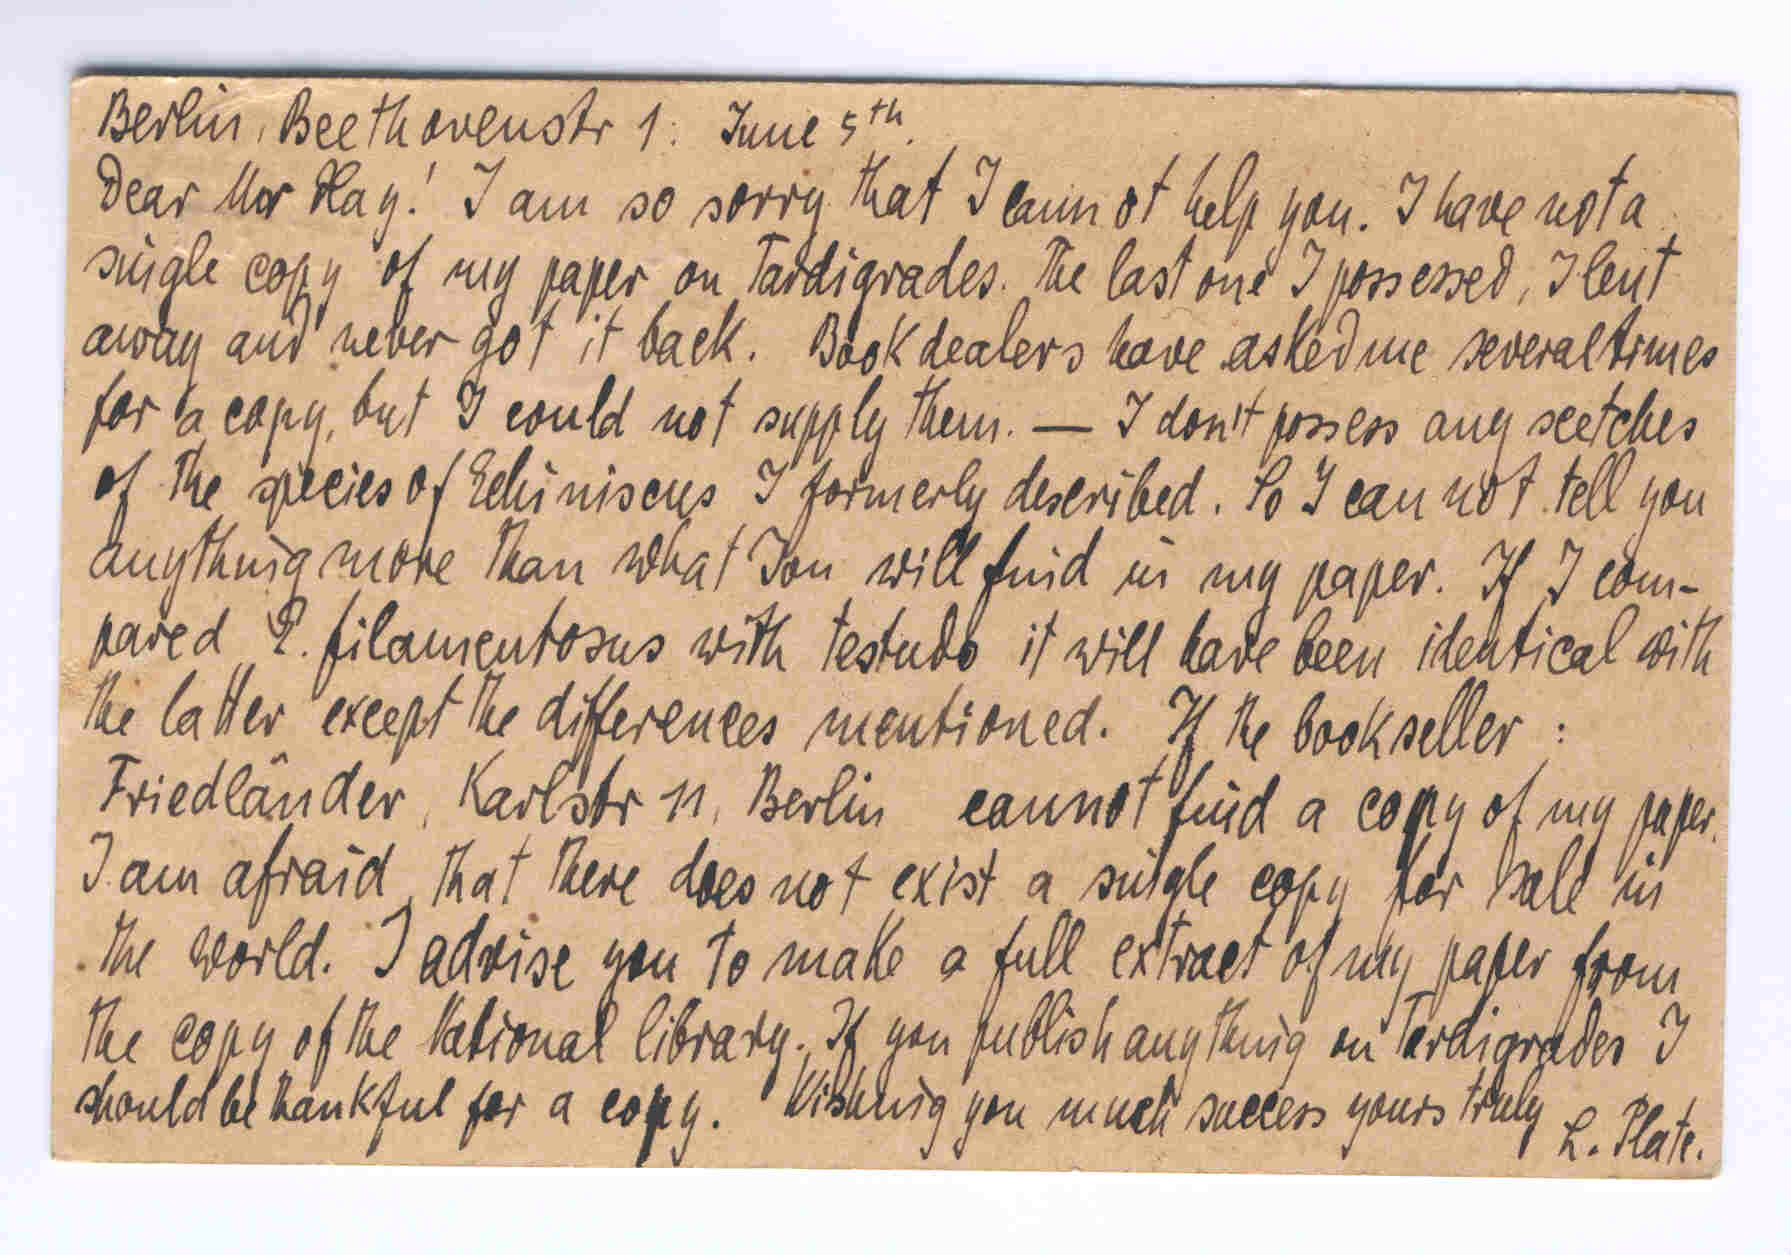 Berlin, Beethovenstr 1. June 5th.
Dear Mr Hay! I am so sorry that I cannot help you. I have not a
single copy of my paper on Tardigrades. The last one I possessed, I lent
away and never got it back. Bookdealers have asked me several times
for a copy, but I could not supply them. — I don't possess any scetches
of the species of Echiniscus I formerly described. So I can not tell you
anything more than what You will find in my paper. If I com-
pared E. filamentosus with testudo it will have been identical with
the latter except the differences mentioned. If the bookseller :
Friedländer, Karlstr 11, Berlin cannot find a copy of my paper.
I am afraid, that there does not exist a single copy for sale in
the world. I advise you to make a full extract of my paper from
the copy of the National library. If you publish anything on Tardigrades I
should be thankful for a copy. Wishing you much success yours truly
L. Plate.